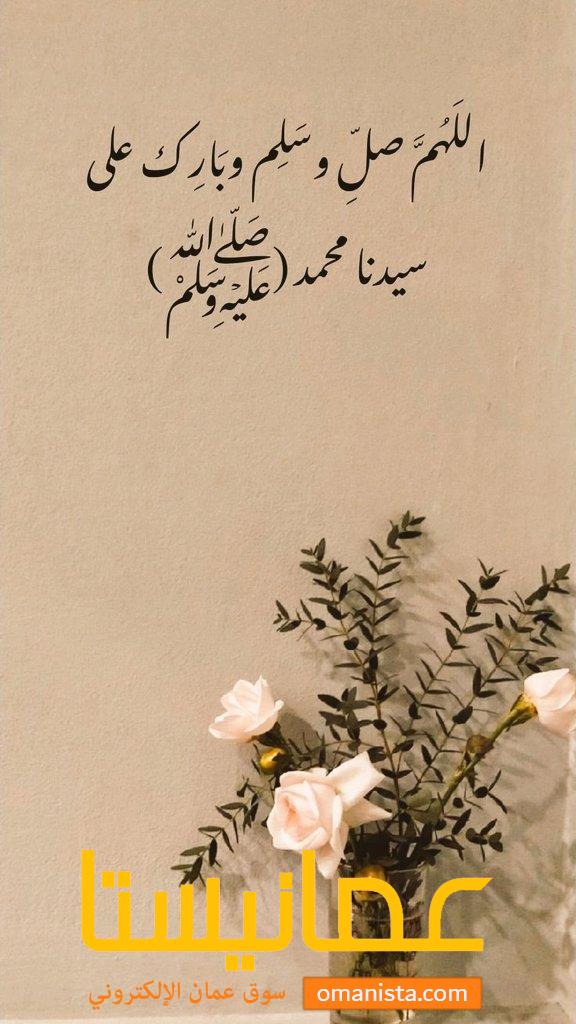 اللَهُمَّ صلِّ وسَلِم وبَارِك على
سيدنا محمد (صَلّىٰ الله عَليْهِ وِسَلمْ)
عمانيستا
سوق عمان الإلكتروني omanista.com